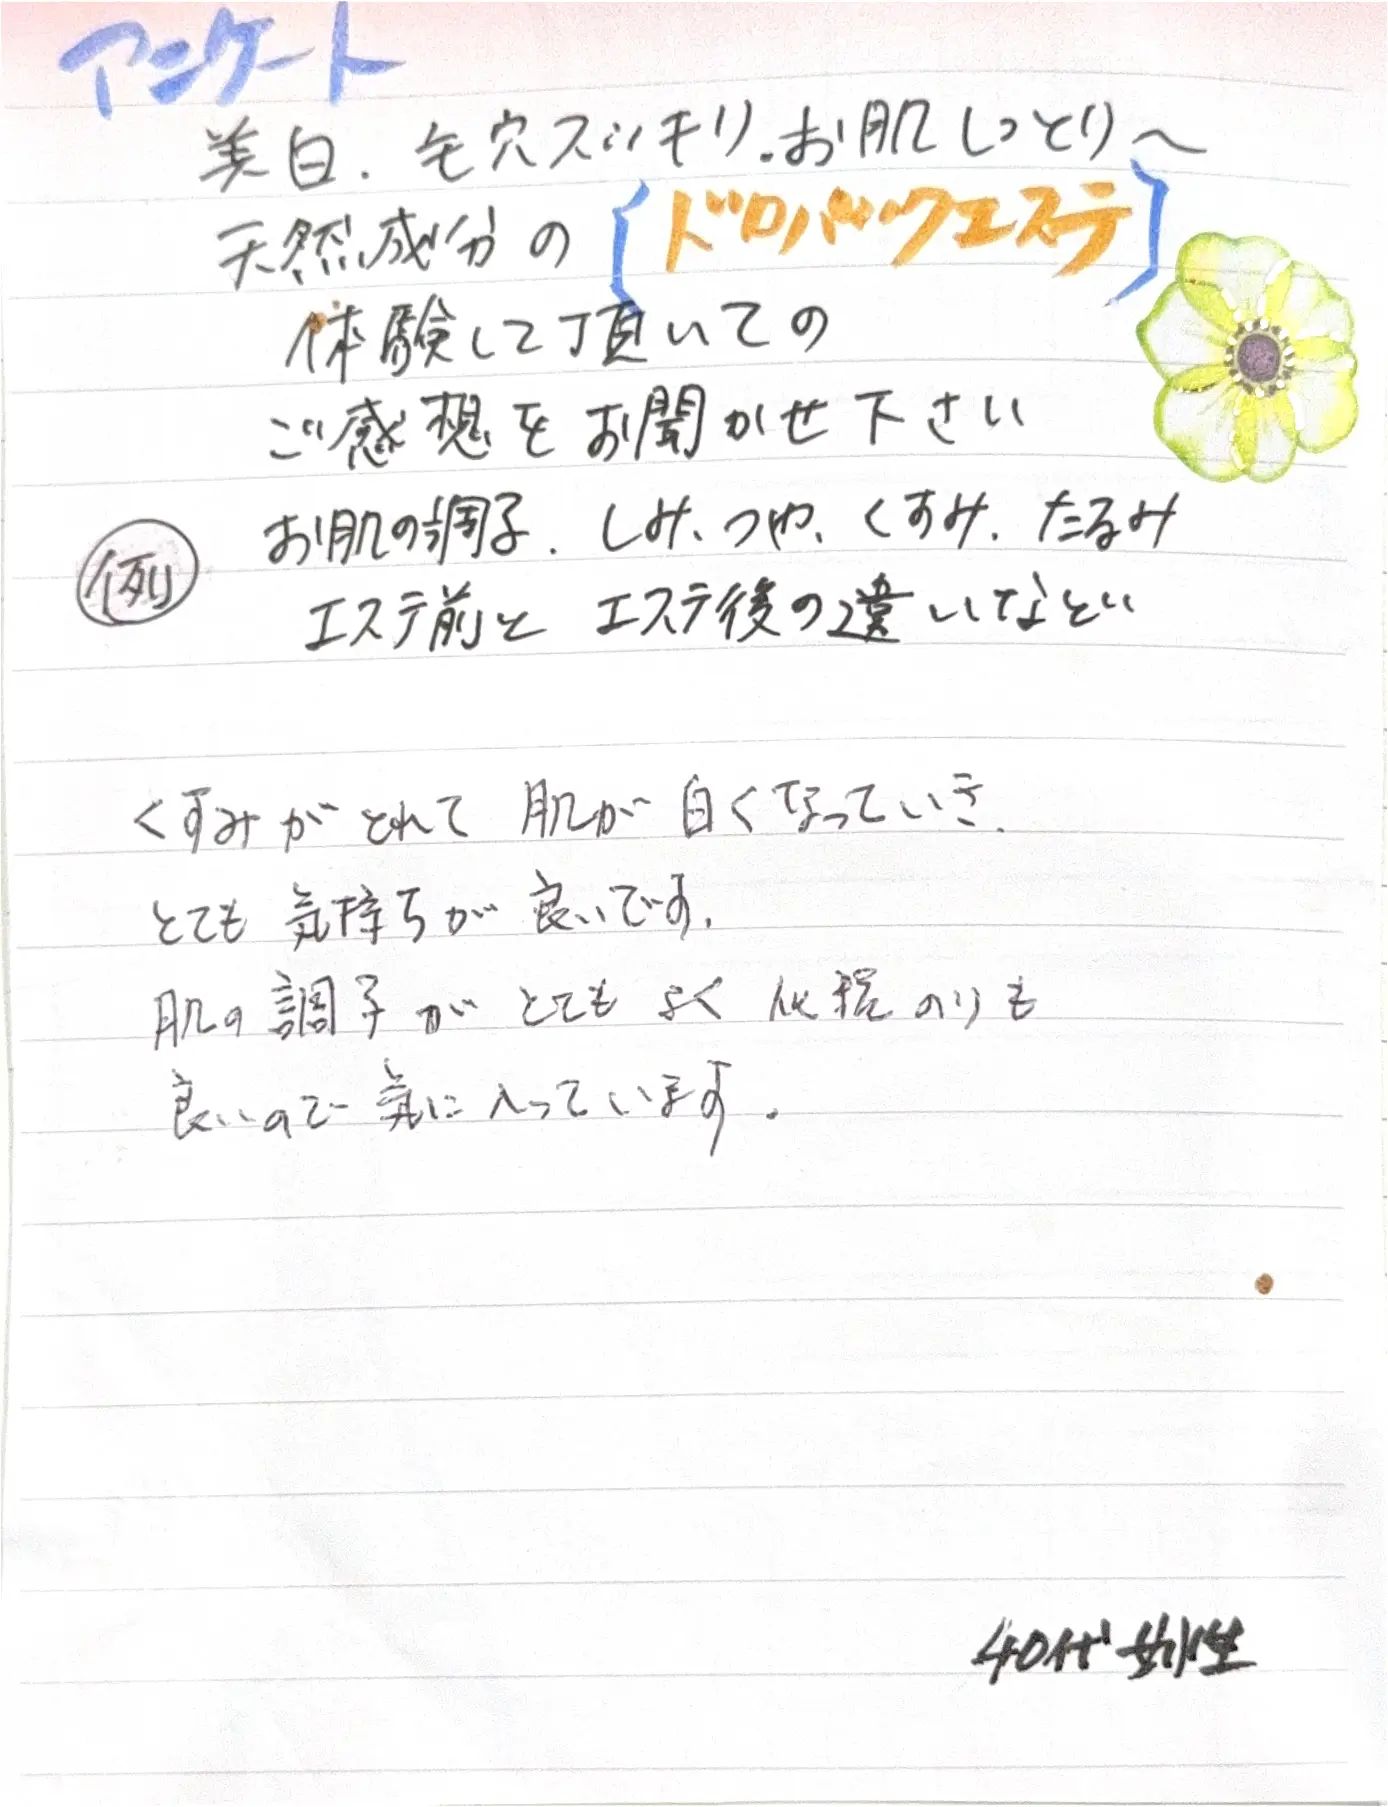 アンケート
美白.毛穴スッキリ.お肌しっとりへ
天然成分の[ドロパックエステ]
体験して頂いての
ご感想をお聞かせ下さい
例 お肌の調子.しみ、つや、くすみ.たるみ
エステ前と エステ後の違いなど
くすみがとれて 肌が白くなっていき、
とても気持ちが良いです。
肌の調子がとてもよく化粧のりも
良いので気に入っています。
40代女性